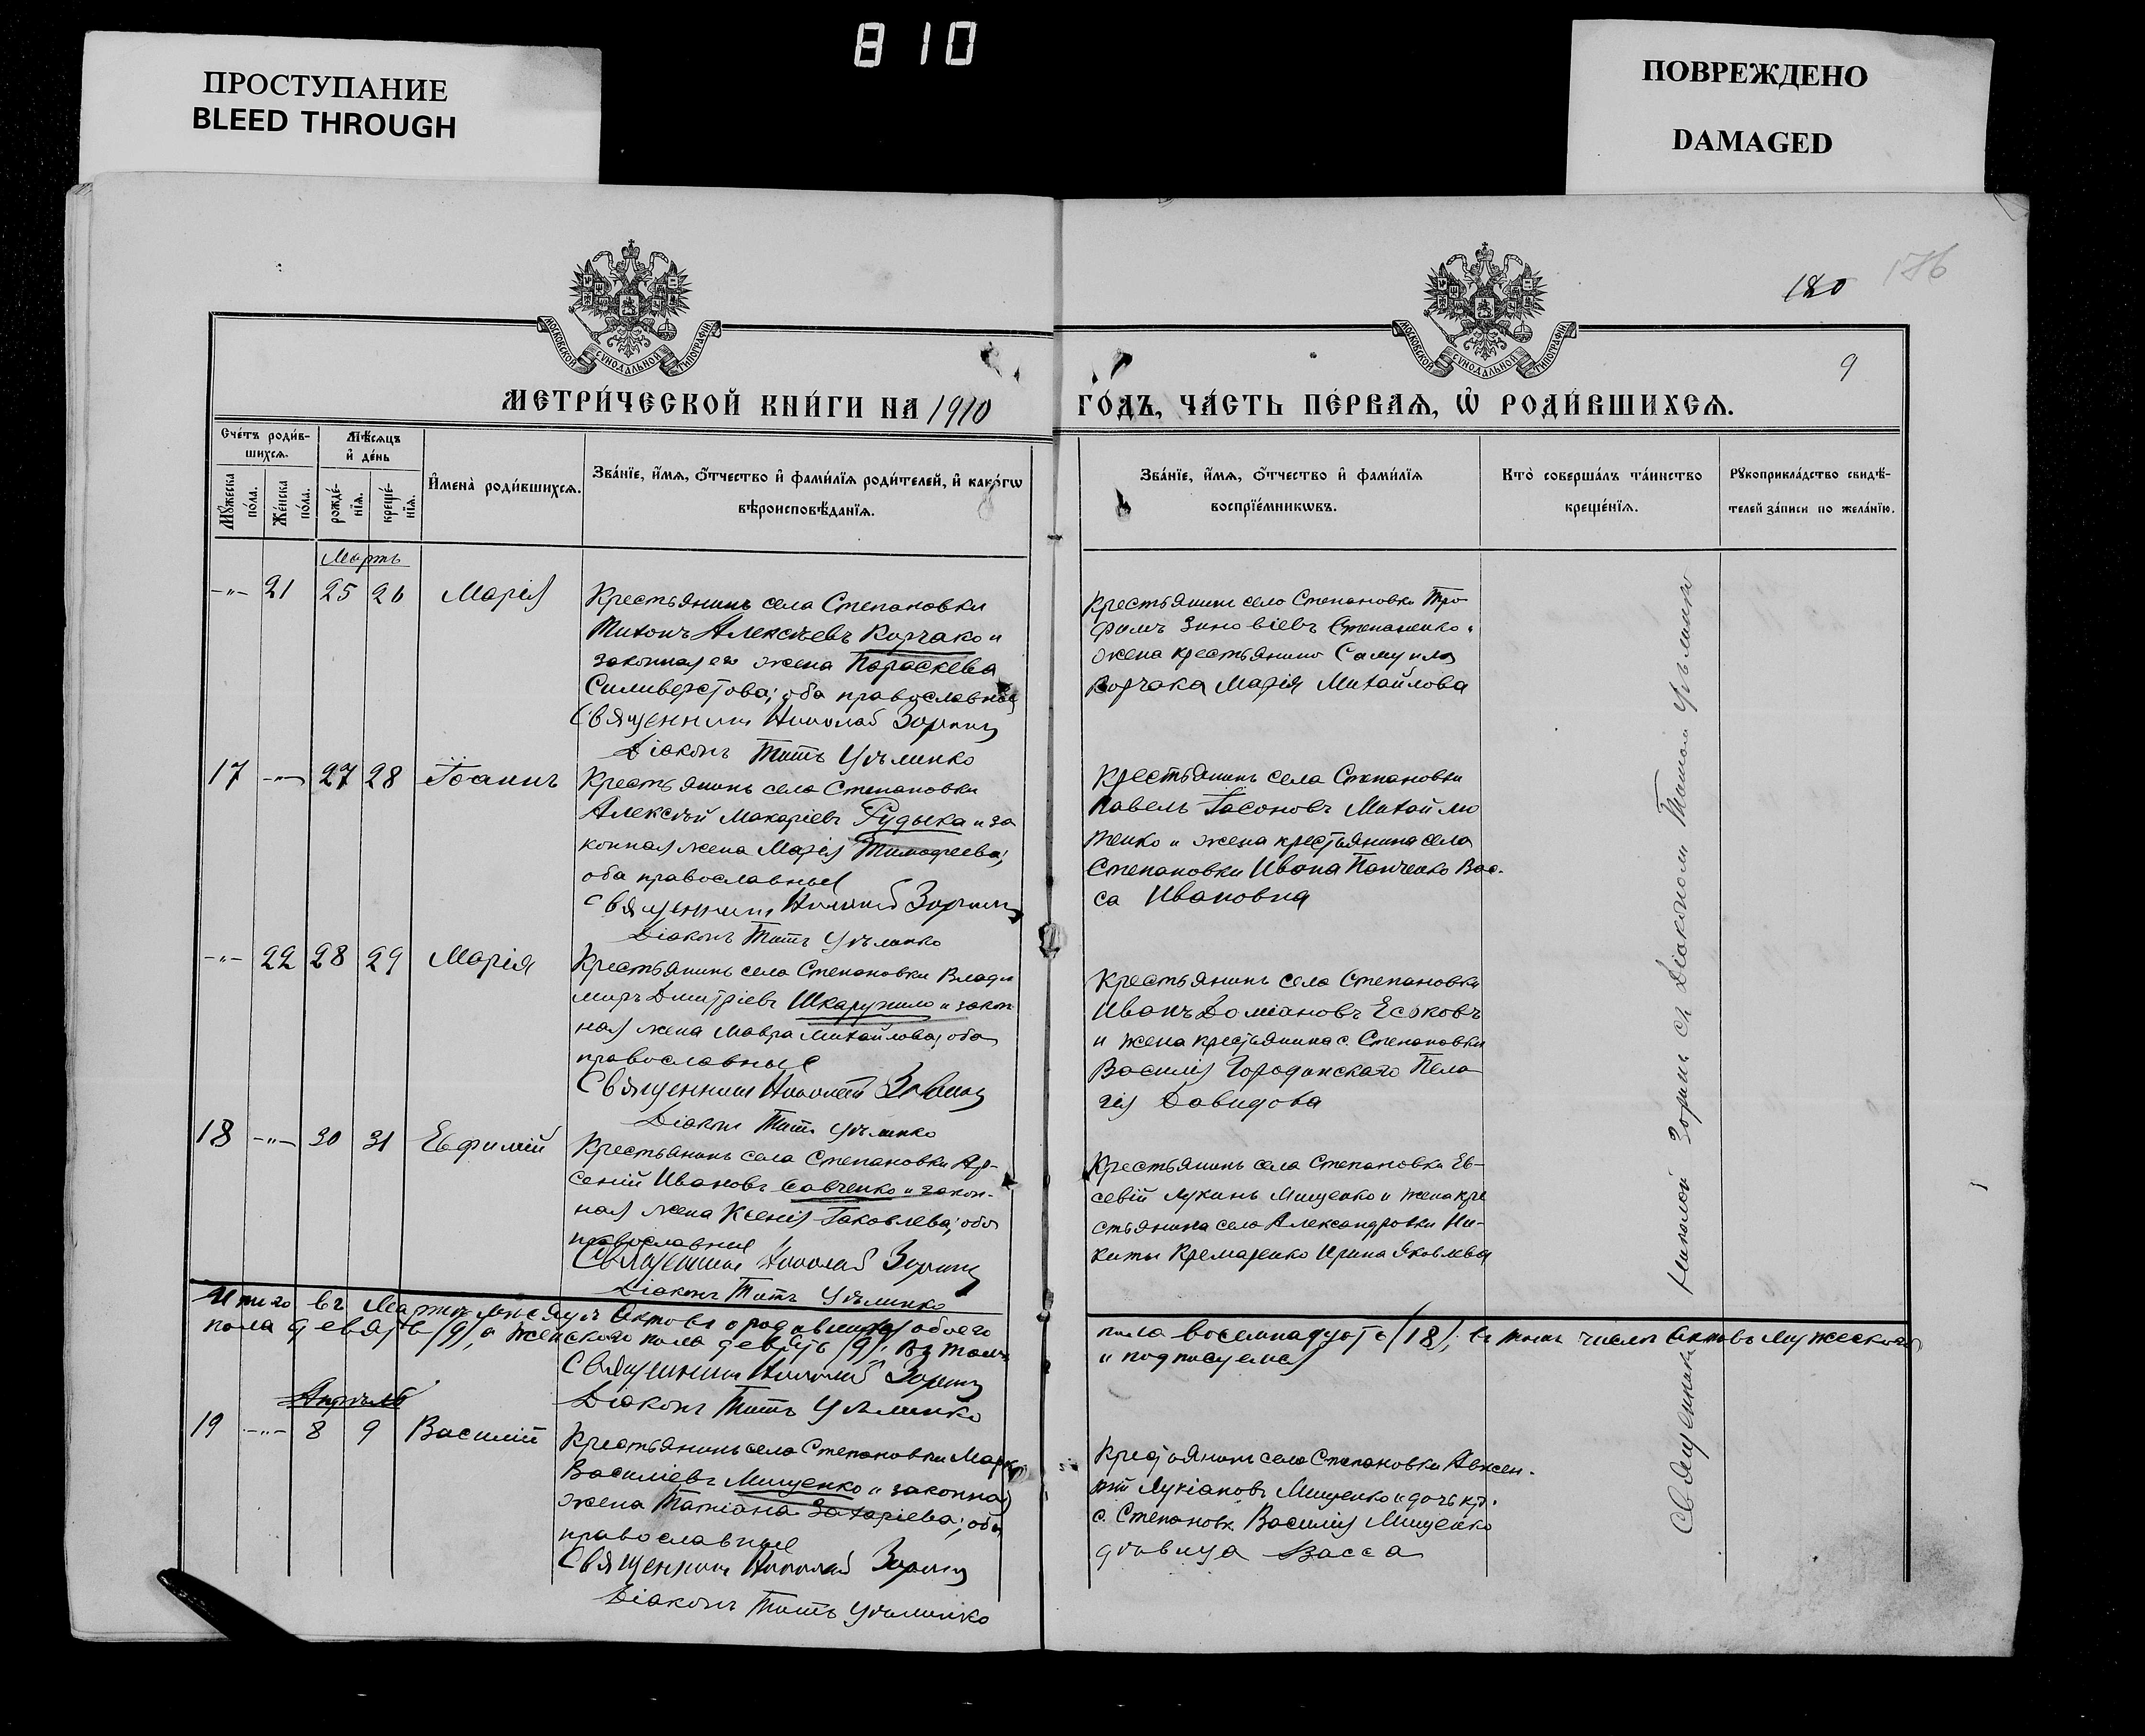 810
ПРОСТУПАНИЕ
BLEED THROUGH
ПОВРЕЖДЕНО
DAMAGED
180
9
МОСКОВСКОЙ СѴНОДАЛЬНОЙ ТИПОГРАФІИ
МОСКОВСКОЙ СѴНОДАЛЬНОЙ ТИПОГРАФІИ
МЕТРИ́ЧЕСКОЙ КНИ́ГИ НА 1910 ГО́ДЪ, ЧА́СТЬ ПЕ́РВАѦ, Ѡ҆ РОДИ́ВШИХСѦ.
Сче́тъ роди́в-
шихсѧ.
Мꙋ́жеска по́ла.
Же́нска по́ла.
Мѣ́сѧцъ
и҆ де́нь
рожде́-
нїѧ.
креще́-
нїѧ.
И҆мена̀ роди́вшихсѧ.
Зва́нїе, и҆́мѧ, ѻ҆́тчество и҆ фами́лїѧ роди́телей, и҆ како́гѡ
вѣроисповѣ́данїѧ.
Зва́нїе, и҆́мѧ, ѻ҆́тчество и҆ фами́лїѧ
воспрїе́мникѡвъ.
Кто̀ соверша́лъ та́инство
креще́нїѧ.
Рꙋкоприкла́дство свидѣ́-
телей за́писи по жела́нїю.
Мартъ
-"- 21 25 26 Марія
Крестьянинъ села Степановки
Тихонъ Алексѣевъ Корчако и
законная его жена Параскева
Силиверстова; оба православные
Священникъ Николай Зоринъ
Діаконъ Титъ
Крестьянинъ села Степановки Тро
фимъ Зиновіевъ Степаненко и
жена крестьянина Самуила
Корчака Марія Михайлова
17 -"- 27 28 Іоаннъ
Крестьянинъ села Степановки
Алексѣй Макаріевъ Рудыка и за
конная жена Марія Тимофеева;
оба православные
Священникъ Николай Зоринъ
Діаконъ Титъ
Крестьянинъ села Степановки
Павелъ Іасоновъ Михайлю
тенко и жена крестьянина села
Степановки Ивана Панченко Вас-
са Ивановна
-"- 22 28 29 Марія
Крестьянинъ села Степановки Влади
миръ Дмитріевъ и закон
ная жена Мавра Михайлова; оба
православные
Священникъ Николай Зоринъ
Діаконъ Титъ
Крестьянинъ села Степановки
Иванъ Доміановъ Есаковъ
и жена крестьянина с. Степановки
Василія Городинскаго Пела
гія Давидова
18 -"- 30 31 Евфимій
Крестьянинъ села Степановки Ар-
сеній Ивановъ Савченко и закон-
ная жена Ксенія Іаковлева; оба
православные
Священникъ Николай Зоринъ
Діаконъ Титъ
Крестьянинъ села Степановки Ев-
севій Лукинъ Мищенко и жена кре
стьянина села Александровки Ни-
киты Кремаренко Ирина Яковлева
Итого въ Мартѣ мѣсяцѣ актовъ о родившихся обоего
пола восемнадцать (18), въ томъ числѣ актовъ мужескаго
пола девять (9), а женскаго пола девять (9). Въ томъ
и подписуемся
Священникъ Николай Зоринъ
Діаконъ Титъ
Апрѣль
19 -"- 8 9 Василій
Крестьянинъ села Степановки Марк
Василіевъ Мищенко и законная
жена Татіана Захаріева; оба
православные
Священникъ Николай Зоринъ
Діаконъ Титъ
Крестьянинъ села Степановки Авксен-
тій Лукіановъ Мищенко и дочь кр.
с. Степановк. Василія Мищенко
дѣвица Васса
Священникъ Николай Зоринъ съ Діакономъ Титомъ